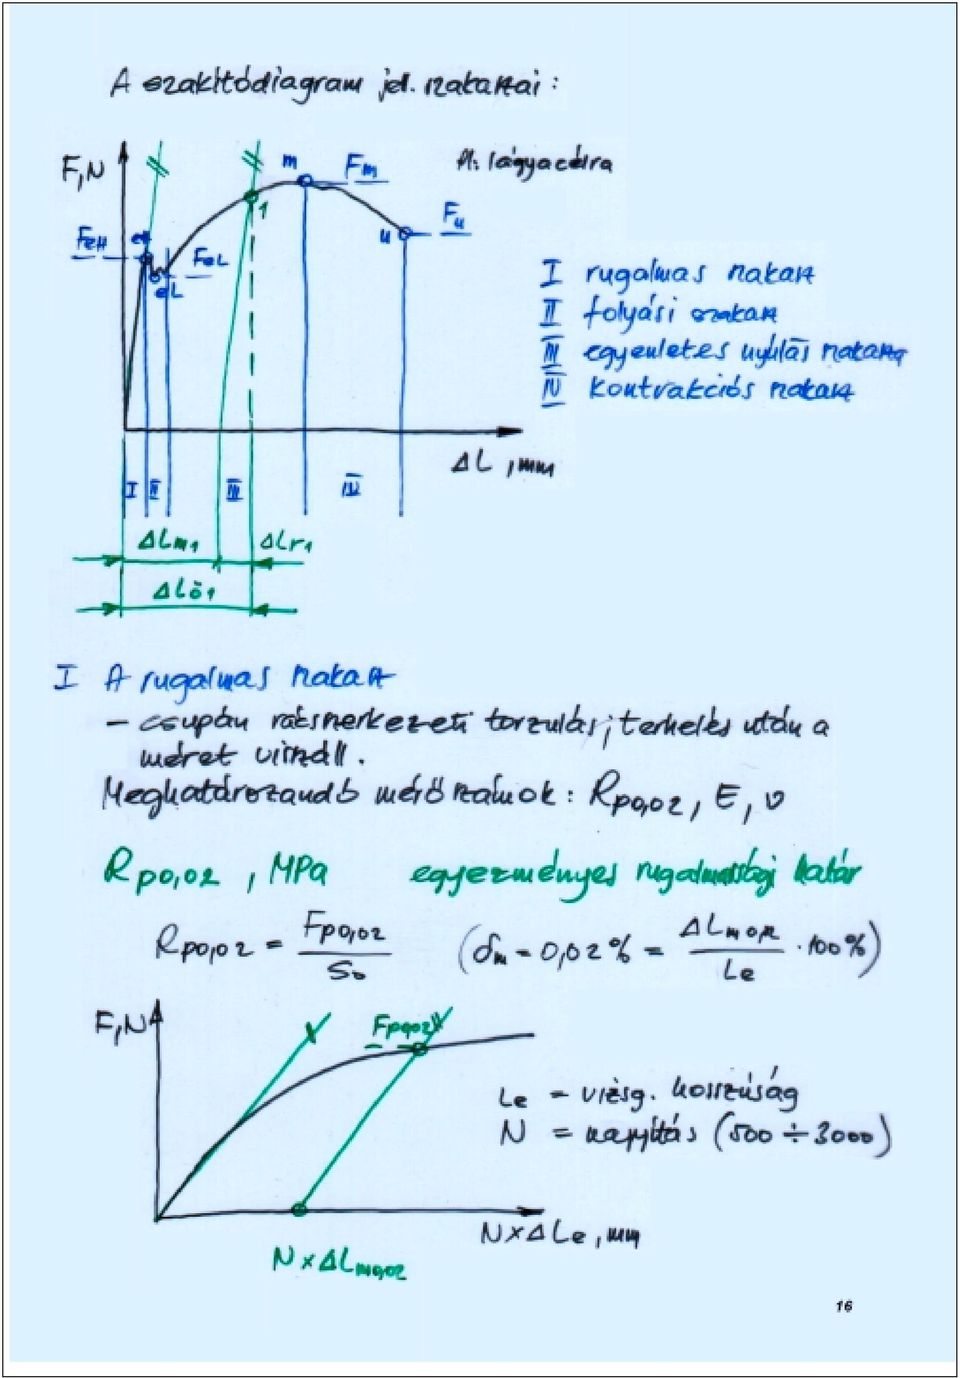 A szakítódiagram jel. szakaszai:
F,N
m
Fm
Pl: lágyacélra
1
Fu
u
FeH
eH
FeL
eL
I rugalmas szakasz
II folyási szakasz
III egyenletes nyúlás szakasza
IV kontrakciós szakasz
ΔL, mm
I II III IV
ΔLm1 ΔLr1
ΔLö1
I A rugalmas szakasz
- csupán rácsszerkezeti torzulás; terhelés után a
méret visszáll.
Meghatározandó mérőszámok: Rp0,02, E, ν
Rp0,02, MPa egyezményes rugalmassági határ
Rp0,02 = Fp0,02 / S0 (δm = 0,02% = ΔLm0,02 / Le · 100%)
F,N
Fp0,02
Le = vizsg. hosszúság
N = nagyítás (500 ÷ 3000)
N×ΔLe, mm
N×ΔLm0,02
16